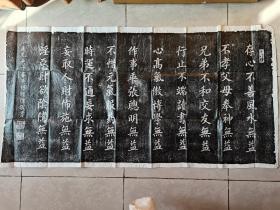 存心不善風水無益
不孝父母奉神無益
兄弟不和交友無益
行止不端讀書無益
心高氣傲博學無益
作事乖張聰明無益
不惜元氣服藥無益
時運不通妄求無益
妄取人財佈施無益
淫惡肆欲陰騭無益